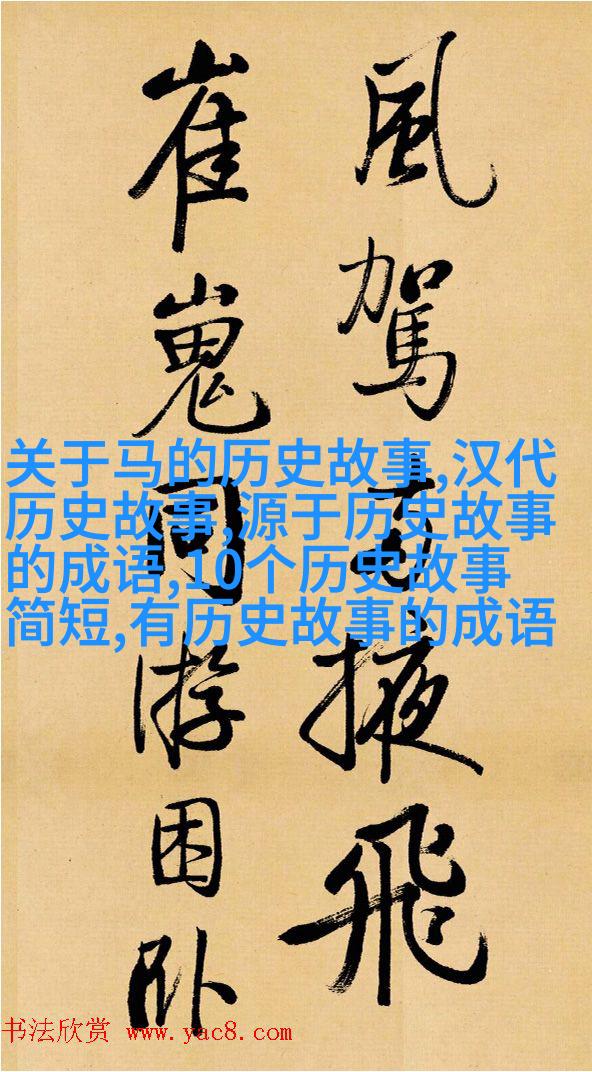 風駕掖飛
崔嵬同游困卧
关于马的历史故事,汉代
历史故事,源于历史故事
的成语,10个历史故事
简短,有历史故事的成语
书法欣赏 www.yac8.com